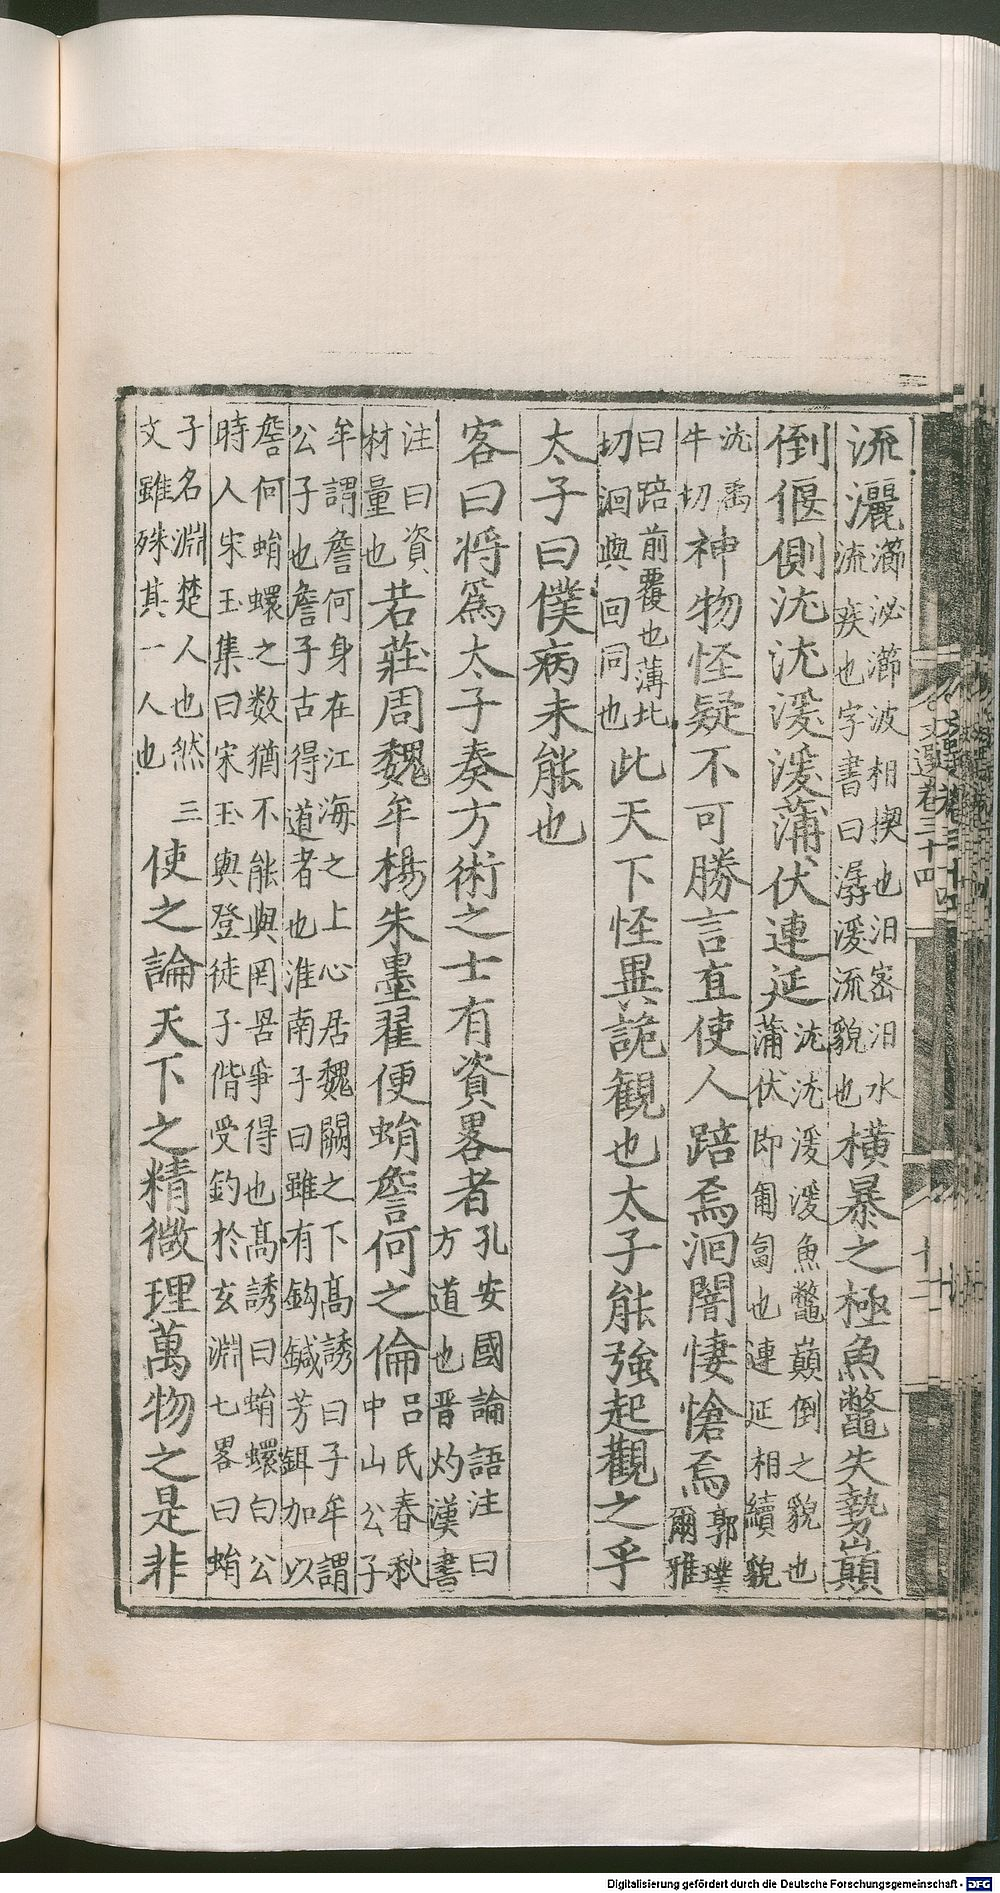 流灑㵫汨㵫波相揳也汨密汨水流疾也字書曰潺湲流貌也橫暴之極魚鼈失埶顛
倒偃側沋沋湲湲蒲伏連延沋沋湲湲魚鼈巔倒之貌也蒲伏即匍匐也連延相續貌
沋禹牛切神物怪疑不可勝言直使人踣焉洄闇悽愴焉郭璞爾雅
曰踣前覆也薄北切洄與回同也此天下怪異詭觀也太子能強起觀之乎
太子曰僕病未能也
客曰將爲太子奏方術之士有資畧者孔安國論語注曰方道也晋灼漢書
注曰資材量也若莊周魏牟楊朱墨翟便蜎詹何之倫呂氏春秋中山公子
牟謂詹何身在江海之上心居魏闕之下高誘曰子牟謂公子也詹子古得道者也淮南子曰雖有鈎鍼芳餌加以
詹何蜎蠉之数猶不能與罔罟爭得也高誘曰蜎蠉白公時人宋玉集曰宋玉與登徒子偕受釣於玄淵七畧曰蜎
子名淵楚人也然三文雖殊其一人也使之論天下之精微理萬物之是非
文選卷三十四
Digitalisierung gefördert durch die Deutsche Forschungsgemeinschaft - DFG